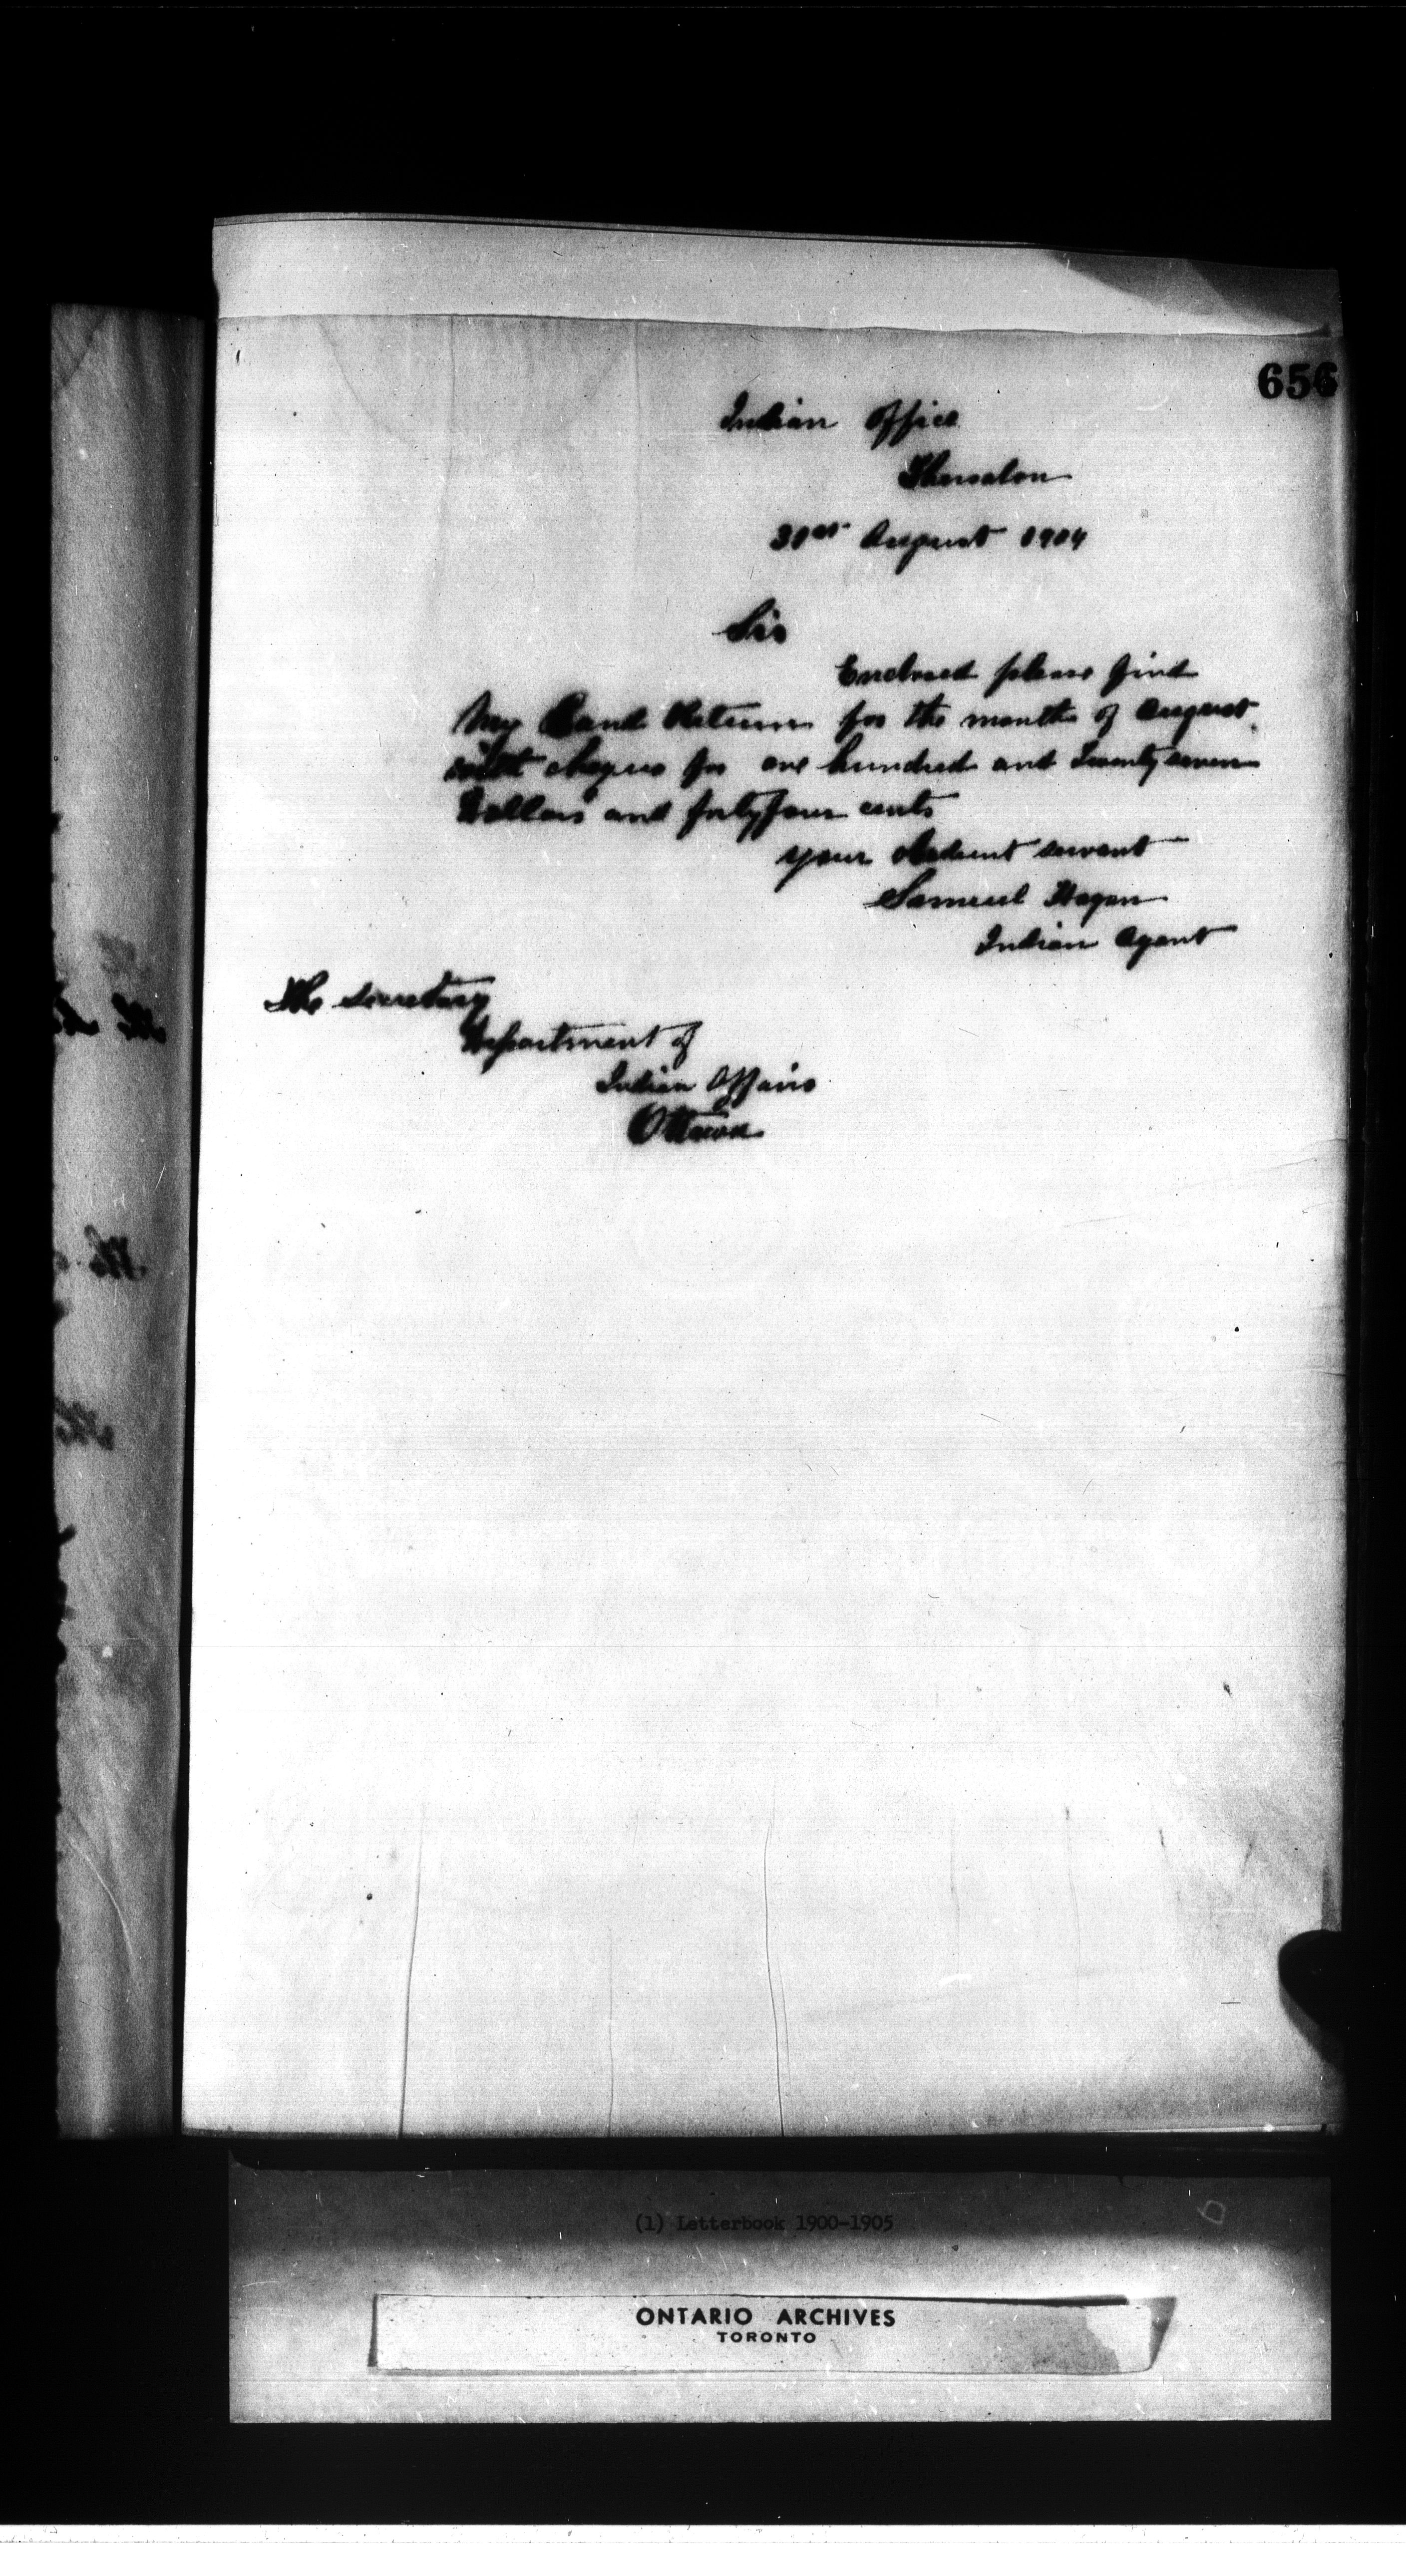 656
Indian Office
Thessalon
31st August 1904
Sir
Enclosed please find
My Land Returns for the month of August
with cheque for one hundred and Twenty seven
Dollars and forty four cents
your obedient servant
Samuel Hagan
Indian Agent
The Secretary
Department of
Indian Affairs
Ottawa
(1) Letterbook 1900-1905
ONTARIO ARCHIVES
TORONTO